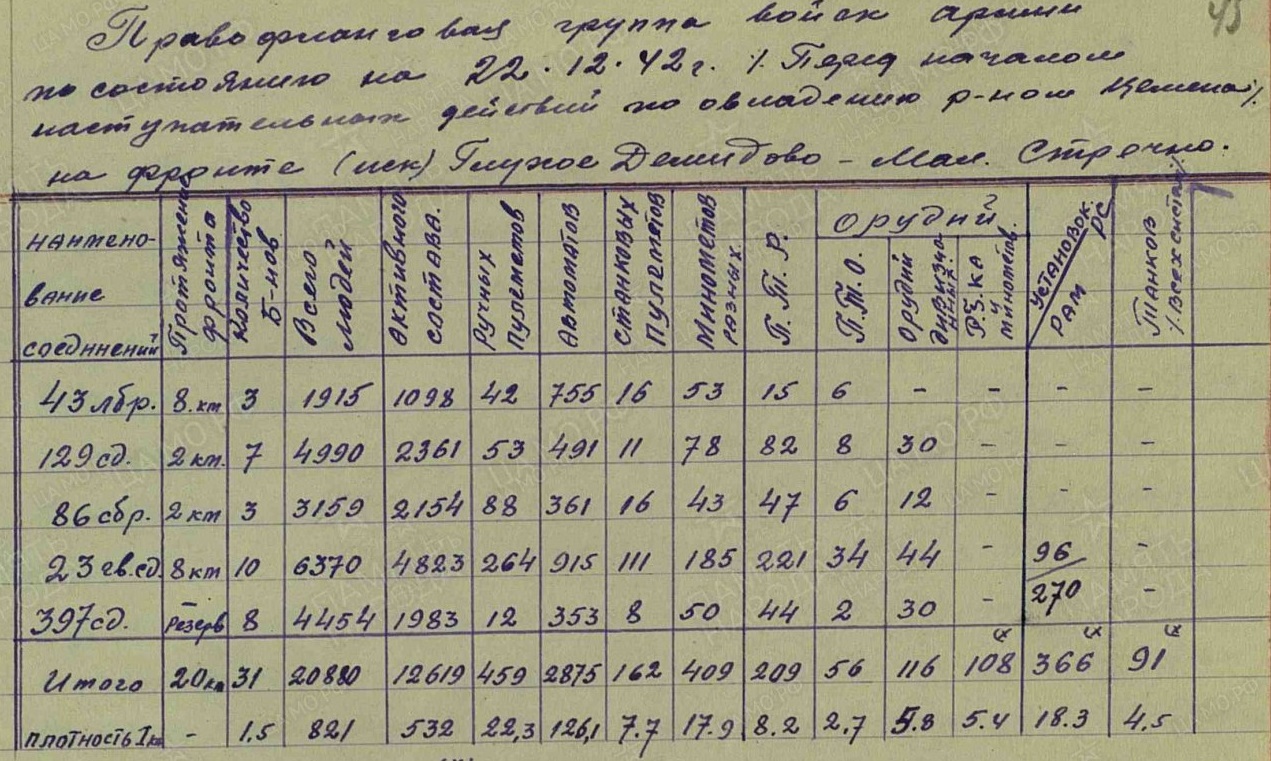 45
Правофланговая группа войск армии
по состоянию на 22.12.42г. % Перед началом
наступательных действий по овладению р-ном Цемена %
на фронте (иск) Глухое Демидово - Мал. Стречно.
наимено-вание соединений | Протяжение фронта | Количество Б-нов | Всего людей | Активного состава. | Ручных пулеметов | Автоматов | Станковых пулеметов | Минометов разных | П.Т.Р. | Орудий П.Т.О. | Орудий дивизион-ных. | РГ.КА и минометов. | Установок РС РАМ | Танков % Всех систем %
43 лбр. | 8.км | 3 | 1915 | 1098 | 42 | 755 | 16 | 53 | 15 | 6 | - | - | - | -
129 сд. | 2 км. | 7 | 4990 | 2361 | 53 | 491 | 11 | 78 | 82 | 8 | 30 | - | - | -
86 сбр. | 2 км | 3 | 3159 | 2154 | 88 | 361 | 16 | 43 | 47 | 6 | 12 | - | - | -
23 гв.сд | 8 км | 10 | 6370 | 4823 | 264 | 915 | 111 | 185 | 221 | 34 | 44 | - | 96/270 | -
397 сд. | Резерв | 8 | 4454 | 1983 | 12 | 353 | 8 | 50 | 44 | 2 | 30 | - | | -
Итого | 20 км | 31 | 20880 | 12619 | 459 | 2875 | 162 | 409 | 209 | 56 | 116 | 108 | 366 | 91
плотность 1 км | - | 1.5 | 821 | 532 | 22,3 | 126,1 | 7.7 | 17.9 | 8.2 | 2.7 | 5.8 | 5.4 | 18.3 | 4.5